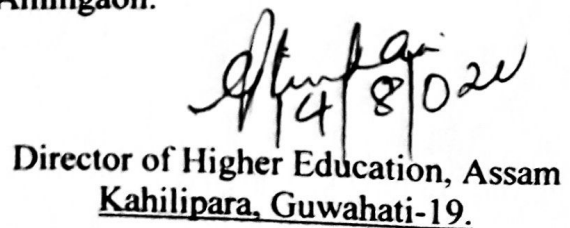 Amingaon.
4/8/02
Director of Higher Education, Assam
Kahilipara, Guwahati-19.